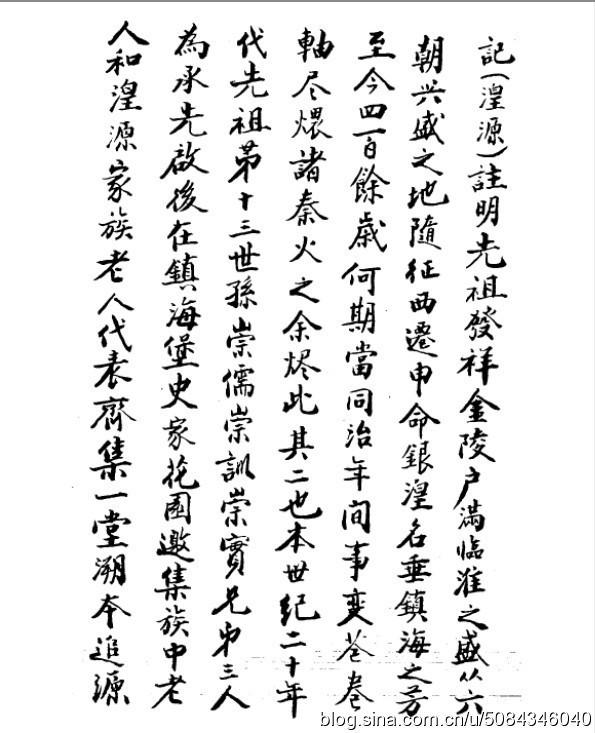 記（湟源）註明先祖發祥金陵户滿臨淮之盛从六
朝兴盛之地隨征西遷申命銀湟名垂鎮海之芳
至今四百餘歲何期當同治年間事变苍卷
軸尽煨諸秦火之余烬此其二也本世纪二十年
代先祖第十三世孫崇儒崇訓崇實兄弟三人
為承先啟後在鎮海堡史家花園邀集族中老
人和湟源家族老人代表齊集一堂溯本追源
blog.sina.com.cn/u/5084346040